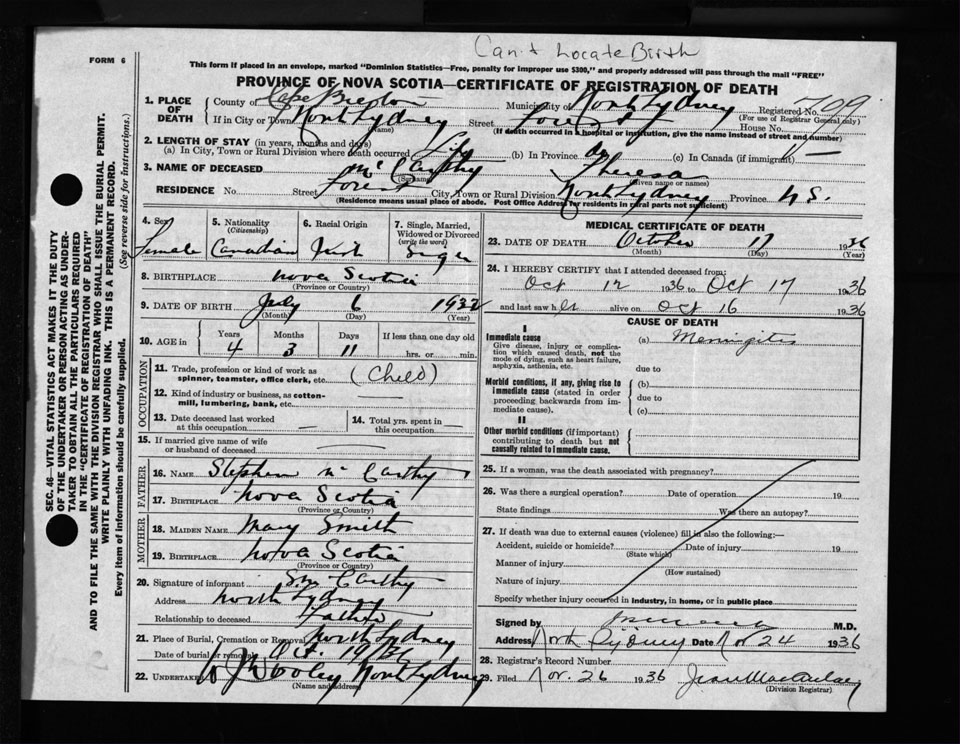 Can't Locate Birth
FORM 6
This form if placed in an envelope, marked "Dominion Statistics—Free, penalty for improper use $300," and properly addressed will pass through the mail "FREE"
PROVINCE OF NOVA SCOTIA—CERTIFICATE OF REGISTRATION OF DEATH
1. PLACE OF DEATH County of Cape Breton Municipality of North Sydney Registered No.
(For use of Registrar General only)
If in City or Town North Sydney Street Forest House No.
(Name) (If death occurred in a hospital or institution, give the name instead of street and number)
2. LENGTH OF STAY (in years, months and days)
(a) In City, Town or Rural Division where death occurred Life (b) In Province do (c) In Canada (if immigrant) —
3. NAME OF DECEASED McCarthy Theresa
(Surname) (Given name or names)
RESIDENCE No. Street Forest City, Town or Rural Division North Sydney Province N S.
(Residence means usual place of abode. Post Office Address for residents in rural parts not sufficient)
4. Sex 5. Nationality (Citizenship) 6. Racial Origin 7. Single, Married, Widowed or Divorced (write the word)
Female Canadian Irish Single
8. BIRTHPLACE Nova Scotia
(Province or Country)
9. DATE OF BIRTH July 6 1932
(Month) (Day) (Year)
10. AGE in Years Months Days If less than one day old
4 3 11 hrs. or min.
OCCUPATION
11. Trade, profession or kind of work as spinner, teamster, office clerk, etc. (Child)
12. Kind of industry or business, as cotton-mill, lumbering, bank, etc. —
13. Date deceased last worked at this occupation — 14. Total yrs. spent in this occupation —
15. If married give name of wife or husband of deceased —
FATHER
16. NAME Stephen McCarthy
17. BIRTHPLACE Nova Scotia
(Province or Country)
MOTHER
18. MAIDEN NAME Mary Smith
19. BIRTHPLACE Nova Scotia
(Province or Country)
20. Signature of informant S McCarthy
Address North Sydney
Relationship to deceased Father
21. Place of Burial, Cremation or Removal North Sydney
Date of burial or removal Oct. 19/36
22. UNDERTAKER Wooley North Sydney
(Name and address)
MEDICAL CERTIFICATE OF DEATH
23. DATE OF DEATH October 17 1936
(Month) (Day) (Year)
24. I HEREBY CERTIFY that I attended deceased from:
Oct 12 1936 to Oct 17 1936
and last saw her alive on Oct 16 1936
CAUSE OF DEATH
I
Immediate cause (a) Meningitis
Give disease, injury or complication which caused death, not the mode of dying, such as heart failure, asphyxia, asthenia, etc.
due to
Morbid conditions, if any, giving rise to immediate cause (stated in order proceeding backwards from immediate cause). (b)
due to
(c)
II
Other morbid conditions (if important) contributing to death but not causally related to immediate cause.
25. If a woman, was the death associated with pregnancy?
26. Was there a surgical operation? Date of operation 19
State findings Was there an autopsy?
27. If death was due to external causes (violence) fill in also the following:—
Accident, suicide or homicide? Date of injury 19
(State which)
Manner of injury
(How sustained)
Nature of injury
Specify whether injury occurred in industry, in home, or in public place
Signed by M.D.
Address North Sydney Date Nov 24 1936
28. Registrar's Record Number
29. Filed Nov. 26 1936 Jean MacAulay
(Division Registrar)
SEC. 46—VITAL STATISTICS ACT MAKES IT THE DUTY
OF THE UNDERTAKER OR PERSON ACTING AS UNDER-
TAKER TO OBTAIN ALL THE PARTICULARS REQUIRED
IN THE "CERTIFICATE OF REGISTRATION OF DEATH"
AND TO FILE THE SAME WITH THE DIVISION REGISTRAR WHO SHALL ISSUE THE BURIAL PERMIT.
WRITE PLAINLY WITH UNFADING INK. THIS IS A PERMANENT RECORD.
Every item of information should be carefully supplied. (See reverse side for instructions.)